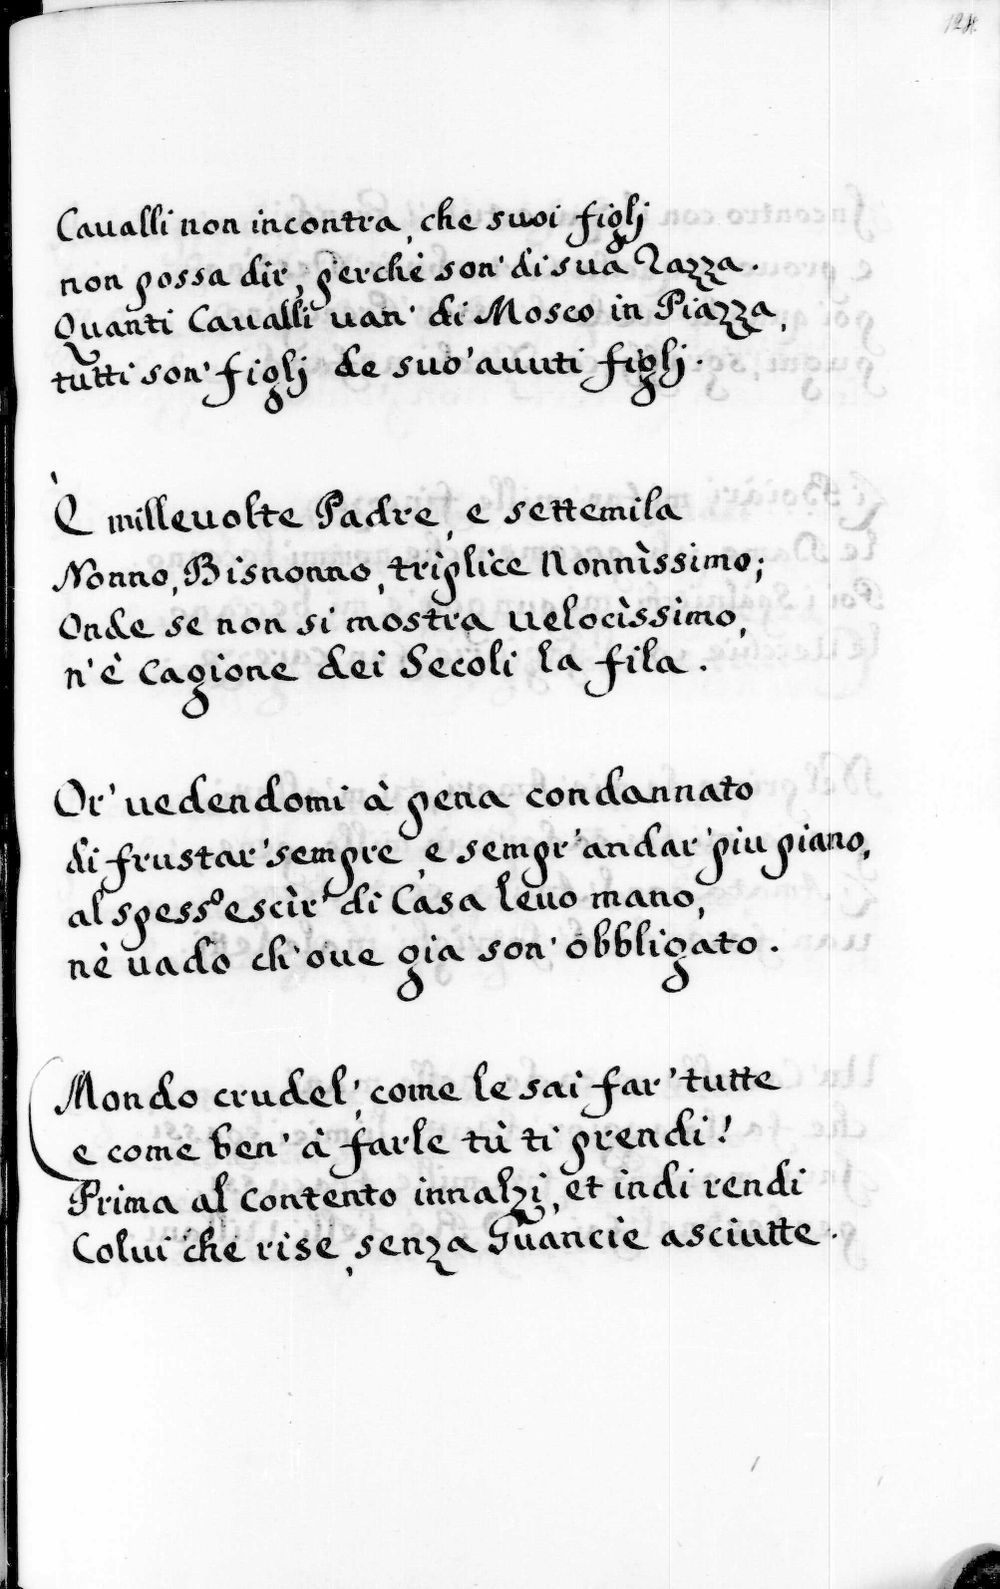 124.
Caualli non incontra, che suoi figlj
non possa dir, perchè son' di sua Razza.
Quanti Caualli uan' di Mosco in Piazza,
tutti son' figlj de suo' auuti figlj.
È milleuolte Padre, e settemila
Nonno, Bisnonno, trìplice Nonnìssimo;
Onde se non si mostra uelocìssimo,
n'è Cagione dei Secoli la fila.
Or' uedendomi à pena condannato
di frustar' sempre, e sempr' andar' piu piano,
al spesso escìr' di Casa leuo mano,
nè uado ch' oue gia son' obbligato.
Mondo crudel', come le sai far' tutte
e come ben' à farle tù ti prendi!
Prima al Contento innalzi, et indi rendi
Colui che rise, senza Guancie asciutte.